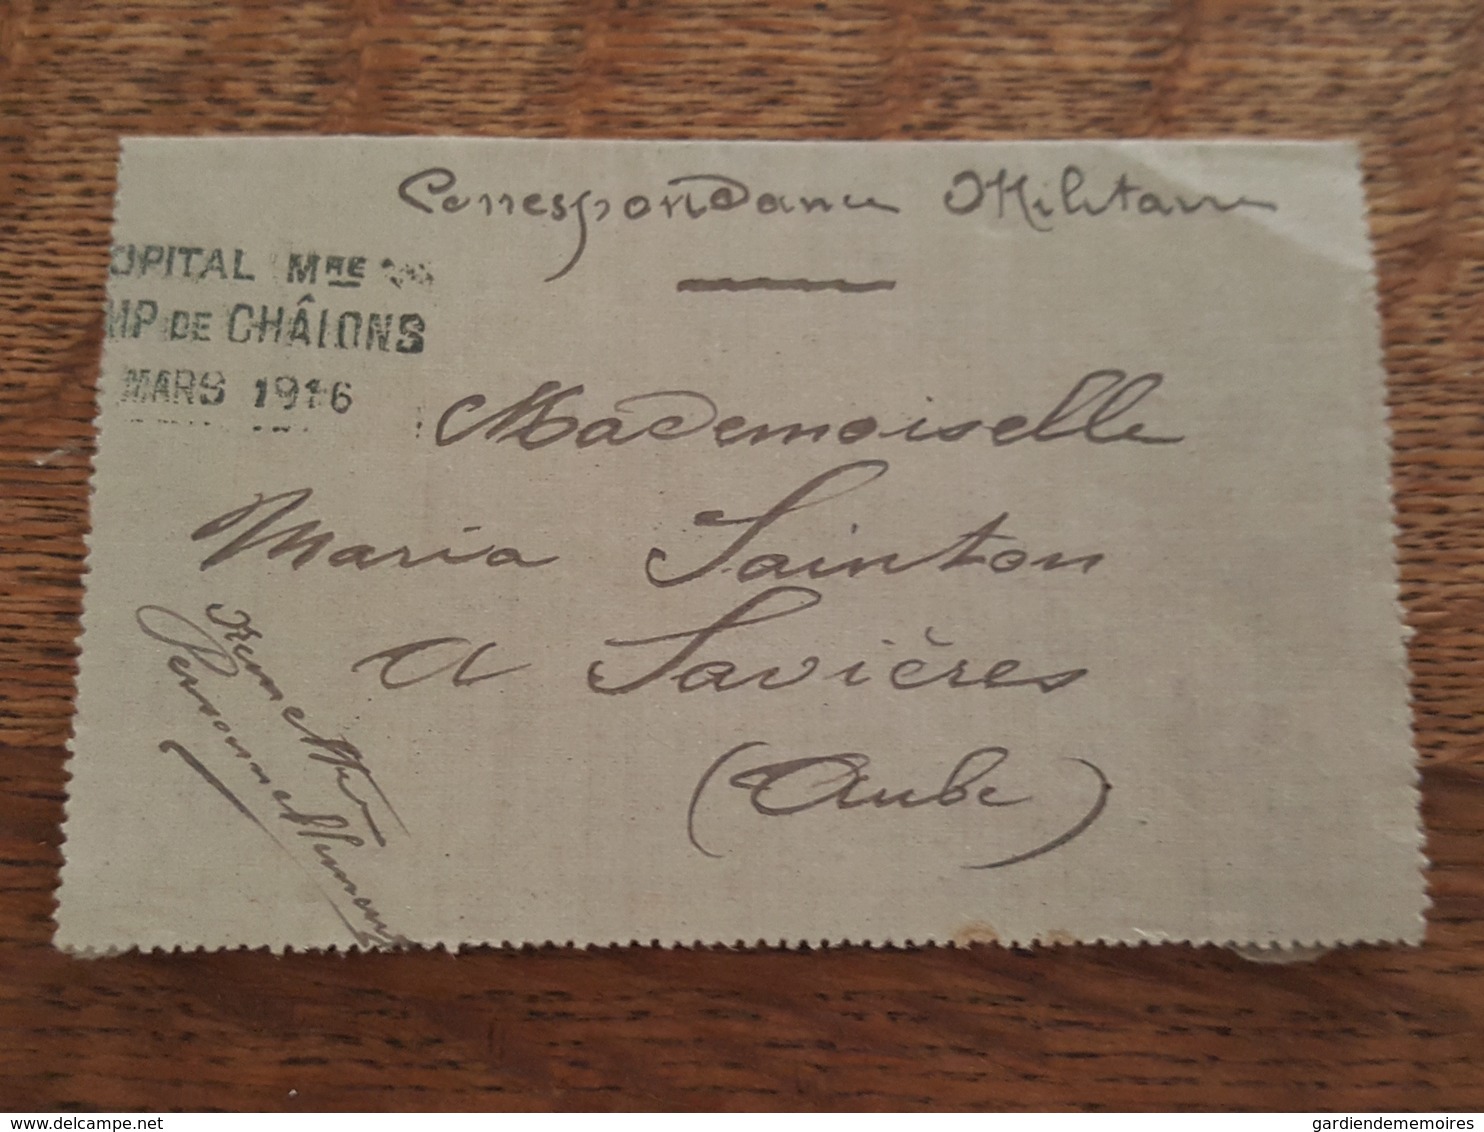 Correspondance Militaire
OPITAL MRE
MP DE CHÂLONS
MARS 1916
Mademoiselle
Maria Sainton
a Savières
(Aube)
www.delcampe.net
gardiendememoires